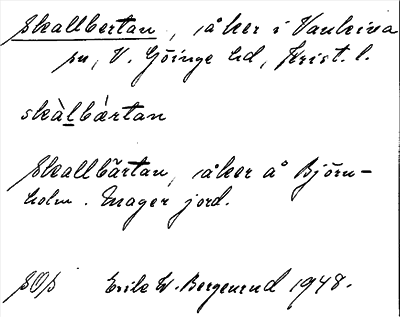 Skallbertan, åker i Vankiva
sn, V. Göinge hd, Krist. l.
skàlbǽrtan
Skallbärtan, åker å Björn-
holm. Mager jord.
SOS Erik W. Bergenrud 1948.